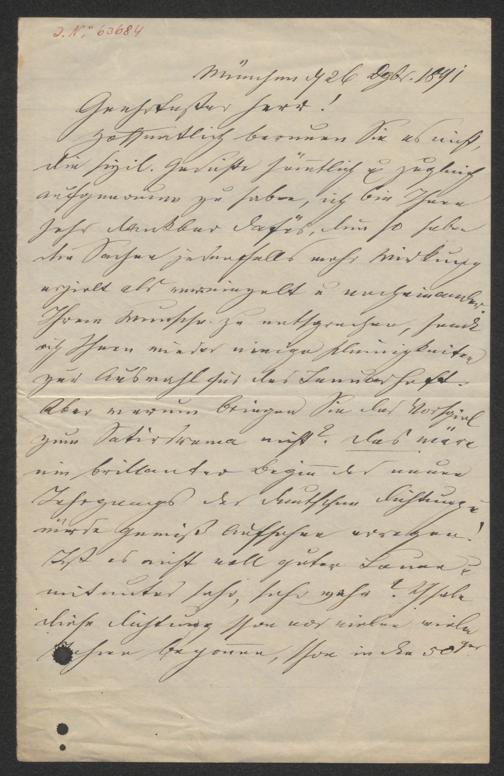 J. N. 63684
München d 26 Dzbr. 1891
Geehrtester Herr!
Hoffentlich bereuen Sie es nicht,
die sizil. Gedichte sämtlich u zugleich
aufgenommen zu haben, ich bin Ihnen
sehr dankbar dafür, denn so haben
die Sachen jedenfalls mehr Wirkung
erzielt als vereinzelt u nacheinander.
Ihrem Wunsche zu entsprechen, sende
ich Ihnen wieder einige Kleinigkeiten
zur Auswahl für das Januarheft.
Aber warum bringen Sie das Vorspiel
zum Satirdrama nicht? Das wäre
ein brillanter Beginn des neuen
Jahrgangs der deutschen Dichtung u
würde gewiß Aufsehen erregen!
Ist es nicht voll guter Laune u
mitunter sehr, sehr wahr? Ich habe
diese Dichtung schon vor vielen vielen
Jahren begonnen, schon in den 50ger